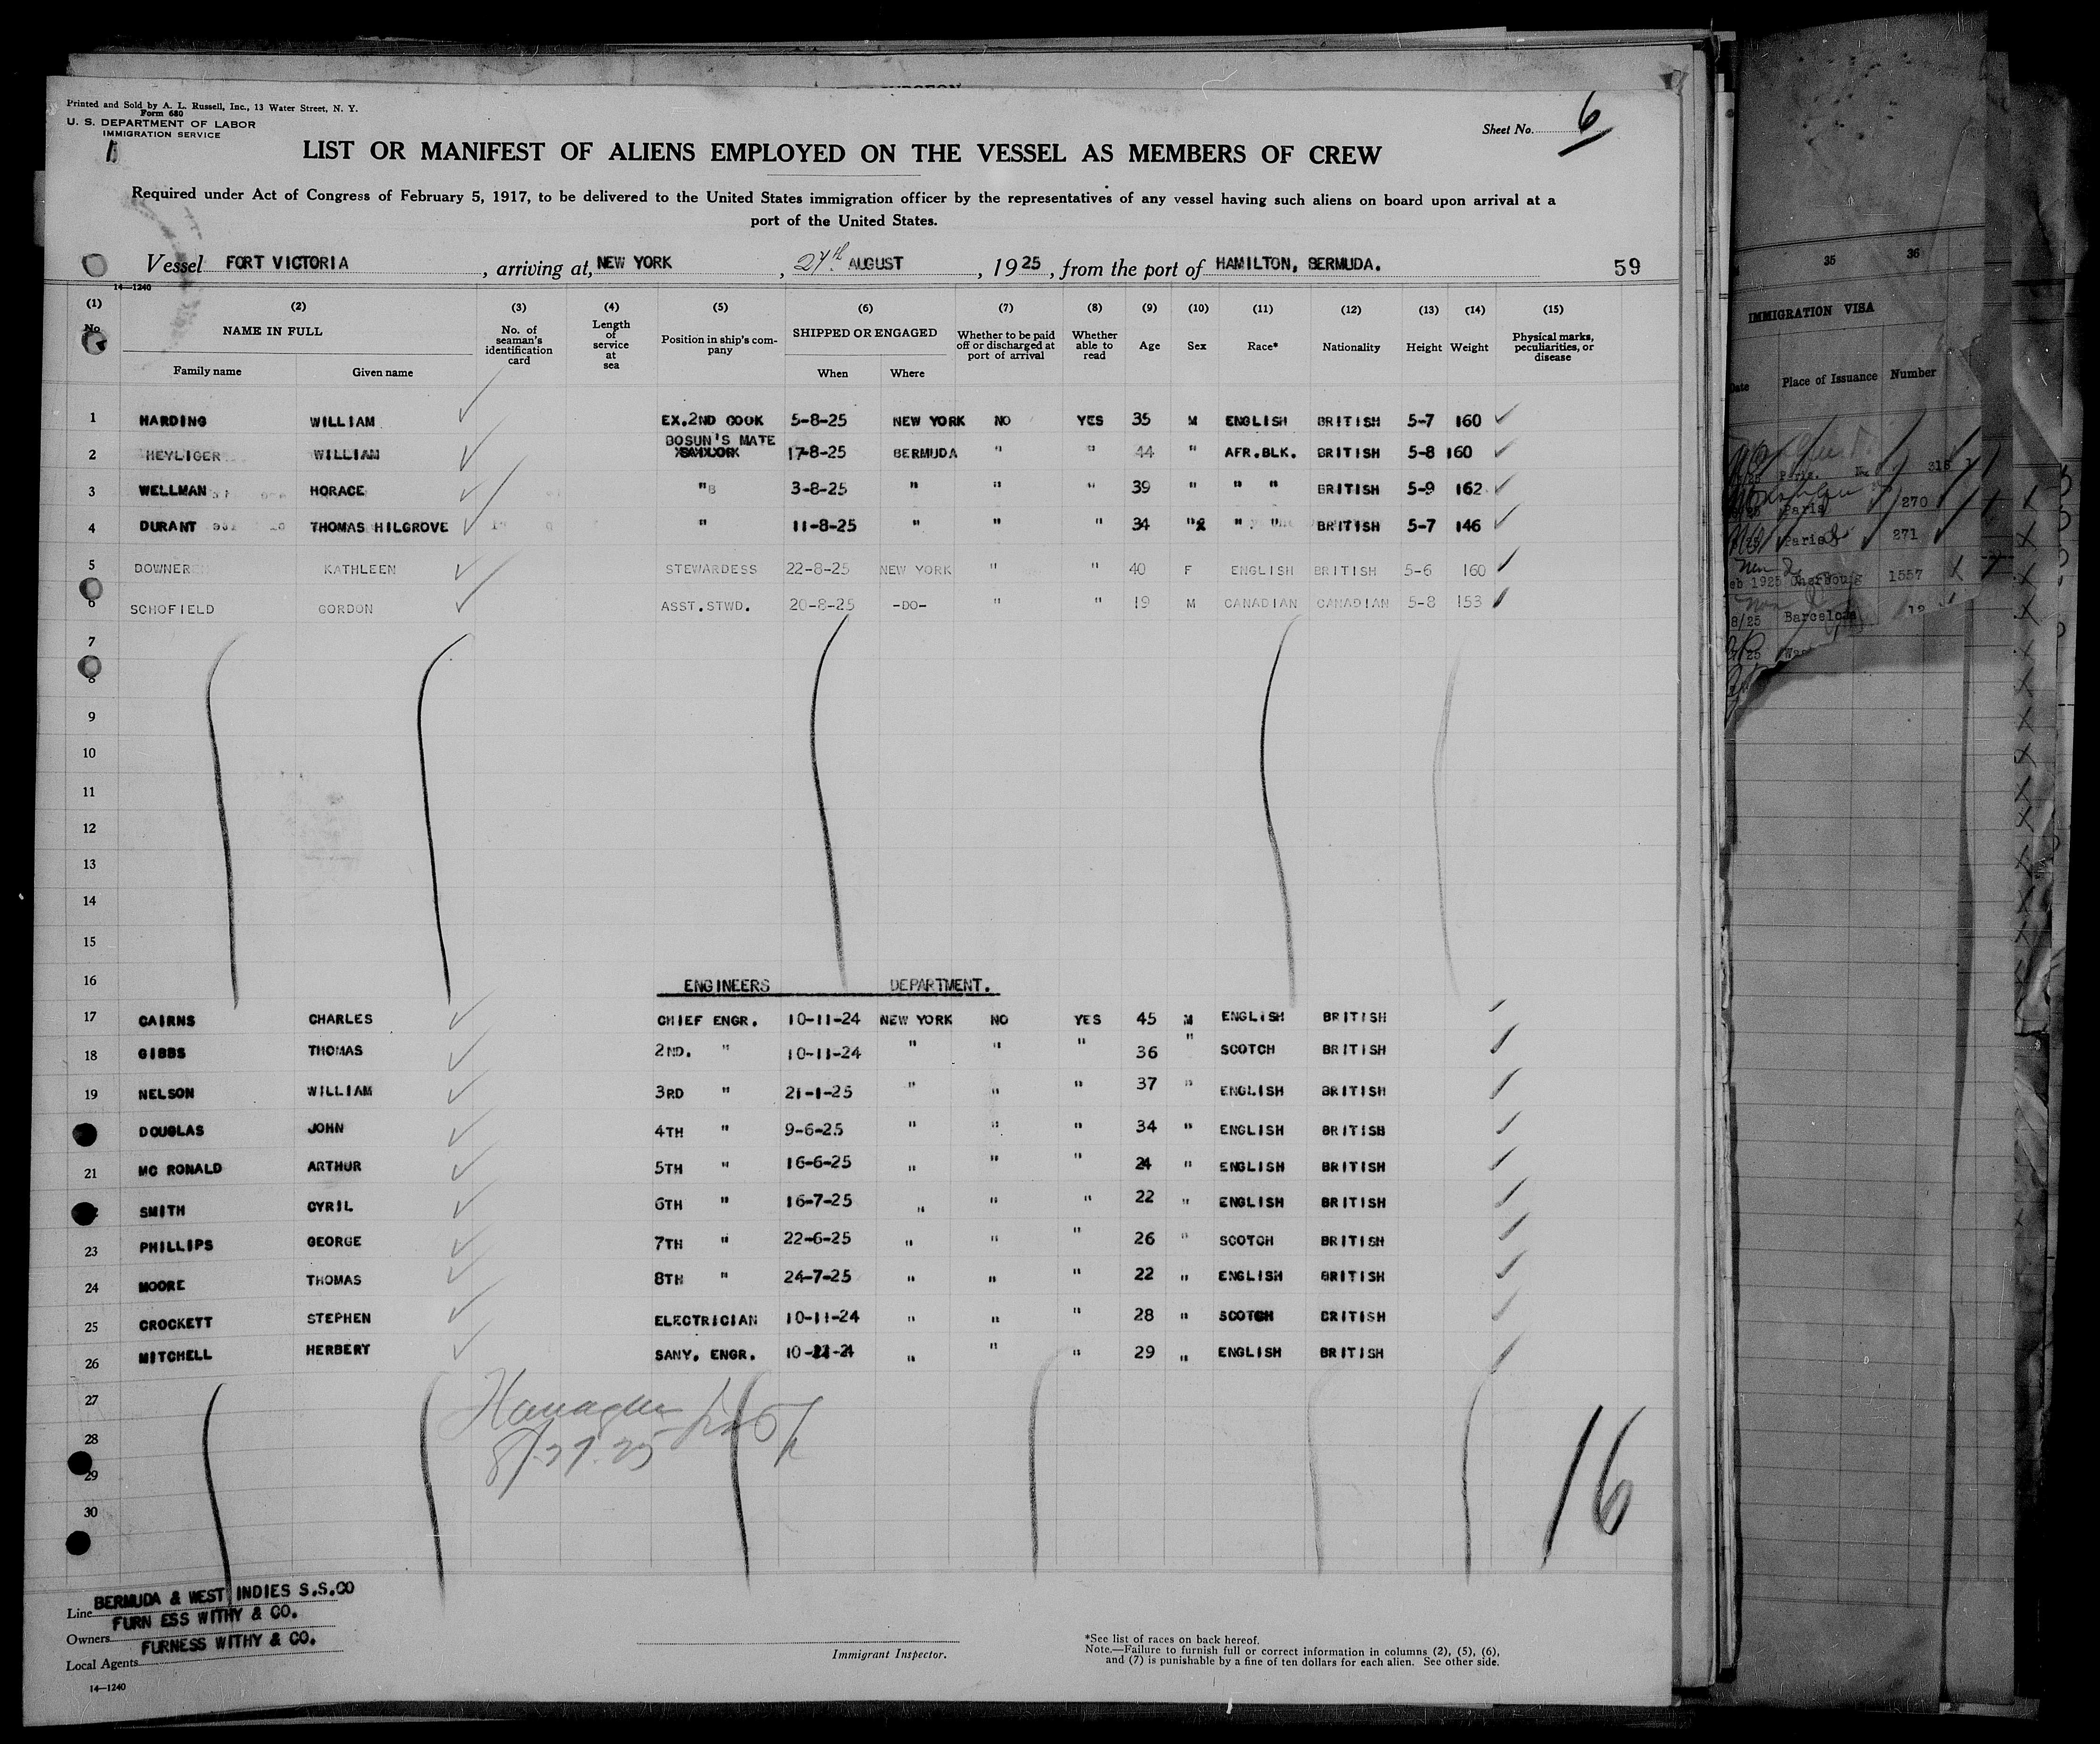 Printed and Sold by A. L. Russell, Inc., 13 Water Street, N. Y.
Form 680
U. S. DEPARTMENT OF LABOR
IMMIGRATION SERVICE
Sheet No. 6
LIST OR MANIFEST OF ALIENS EMPLOYED ON THE VESSEL AS MEMBERS OF CREW
Required under Act of Congress of February 5, 1917, to be delivered to the United States immigration officer by the representatives of any vessel having such aliens on board upon arrival at a
port of the United States.
Vessel FORT VICTORIA, arriving at, NEW YORK, 27th AUGUST, 1925, from the port of HAMILTON, BERMUDA. 59
14—1240
(1) (2) (3) (4) (5) (6) (7) (8) (9) (10) (11) (12) (13) (14) (15)
No NAME IN FULL Family name Given name No. of seaman's identification card Length of service at sea Position in ship's company SHIPPED OR ENGAGED When Where Whether to be paid off or discharged at port of arrival Whether able to read Age Sex Race* Nationality Height Weight Physical marks, peculiarities, or disease
1 HARDING WILLIAM EX.2ND COOK 5-8-25 NEW YORK NO YES 35 M ENGLISH BRITISH 5-7 160
BOSUN'S MATE
2 HEYLIGER WILLIAM 17-8-25 BERMUDA " " 44 " AFR.BLK. BRITISH 5-8 160
3 WELLMAN HORACE " 3-8-25 " " " 39 " " " BRITISH 5-9 162
4 DURANT THOMAS HILGROVE " 11-8-25 " " " 34 " " " BRITISH 5-7 146
5 DOWNER KATHLEEN STEWARDESS 22-8-25 NEW YORK " " 40 F ENGLISH BRITISH 5-6 160
6 SCHOFIELD GORDON ASST.STWD. 20-8-25 -DO- " " 19 M CANADIAN CANADIAN 5-8 153
7
8
9
10
11
12
13
14
15
16 ENGINEERS DEPARTMENT.
17 CAIRNS CHARLES CHIEF ENGR. 10-11-24 NEW YORK NO YES 45 M ENGLISH BRITISH
18 GIBBS THOMAS 2ND. " 10-11-24 " " " 36 " SCOTCH BRITISH
19 NELSON WILLIAM 3RD " 21-1-25 " " " 37 " ENGLISH BRITISH
DOUGLAS JOHN 4TH " 9-6-25 " " " 34 " ENGLISH BRITISH
21 MC RONALD ARTHUR 5TH " 16-6-25 " " " 24 " ENGLISH BRITISH
SMITH CYRIL 6TH " 16-7-25 " " " 22 " ENGLISH BRITISH
23 PHILLIPS GEORGE 7TH " 22-6-25 " " " 26 " SCOTCH BRITISH
24 MOORE THOMAS 8TH " 24-7-25 " " " 22 " ENGLISH BRITISH
25 CROCKETT STEPHEN ELECTRICIAN 10-11-24 " " " 28 " SCOTCH BRITISH
26 MITCHELL HERBERT SANY. ENGR. " " " 29 " ENGLISH BRITISH
27
28
8/27.25
29
30
16
Line BERMUDA & WEST INDIES S.S.CO
Owners FURN ESS WITHY & CO.
Local Agents FURNESS WITHY & CO.
14—1240
Immigrant Inspector.
*See list of races on back hereof.
Note.—Failure to furnish full or correct information in columns (2), (5), (6),
and (7) is punishable by a fine of ten dollars for each alien. See other side.
35 36
IMMIGRATION VISA
Place of Issuance Number
Paris. 316
Paris 270
Paris 271
1925 Cherbourg 1557
8/25 Barcelona